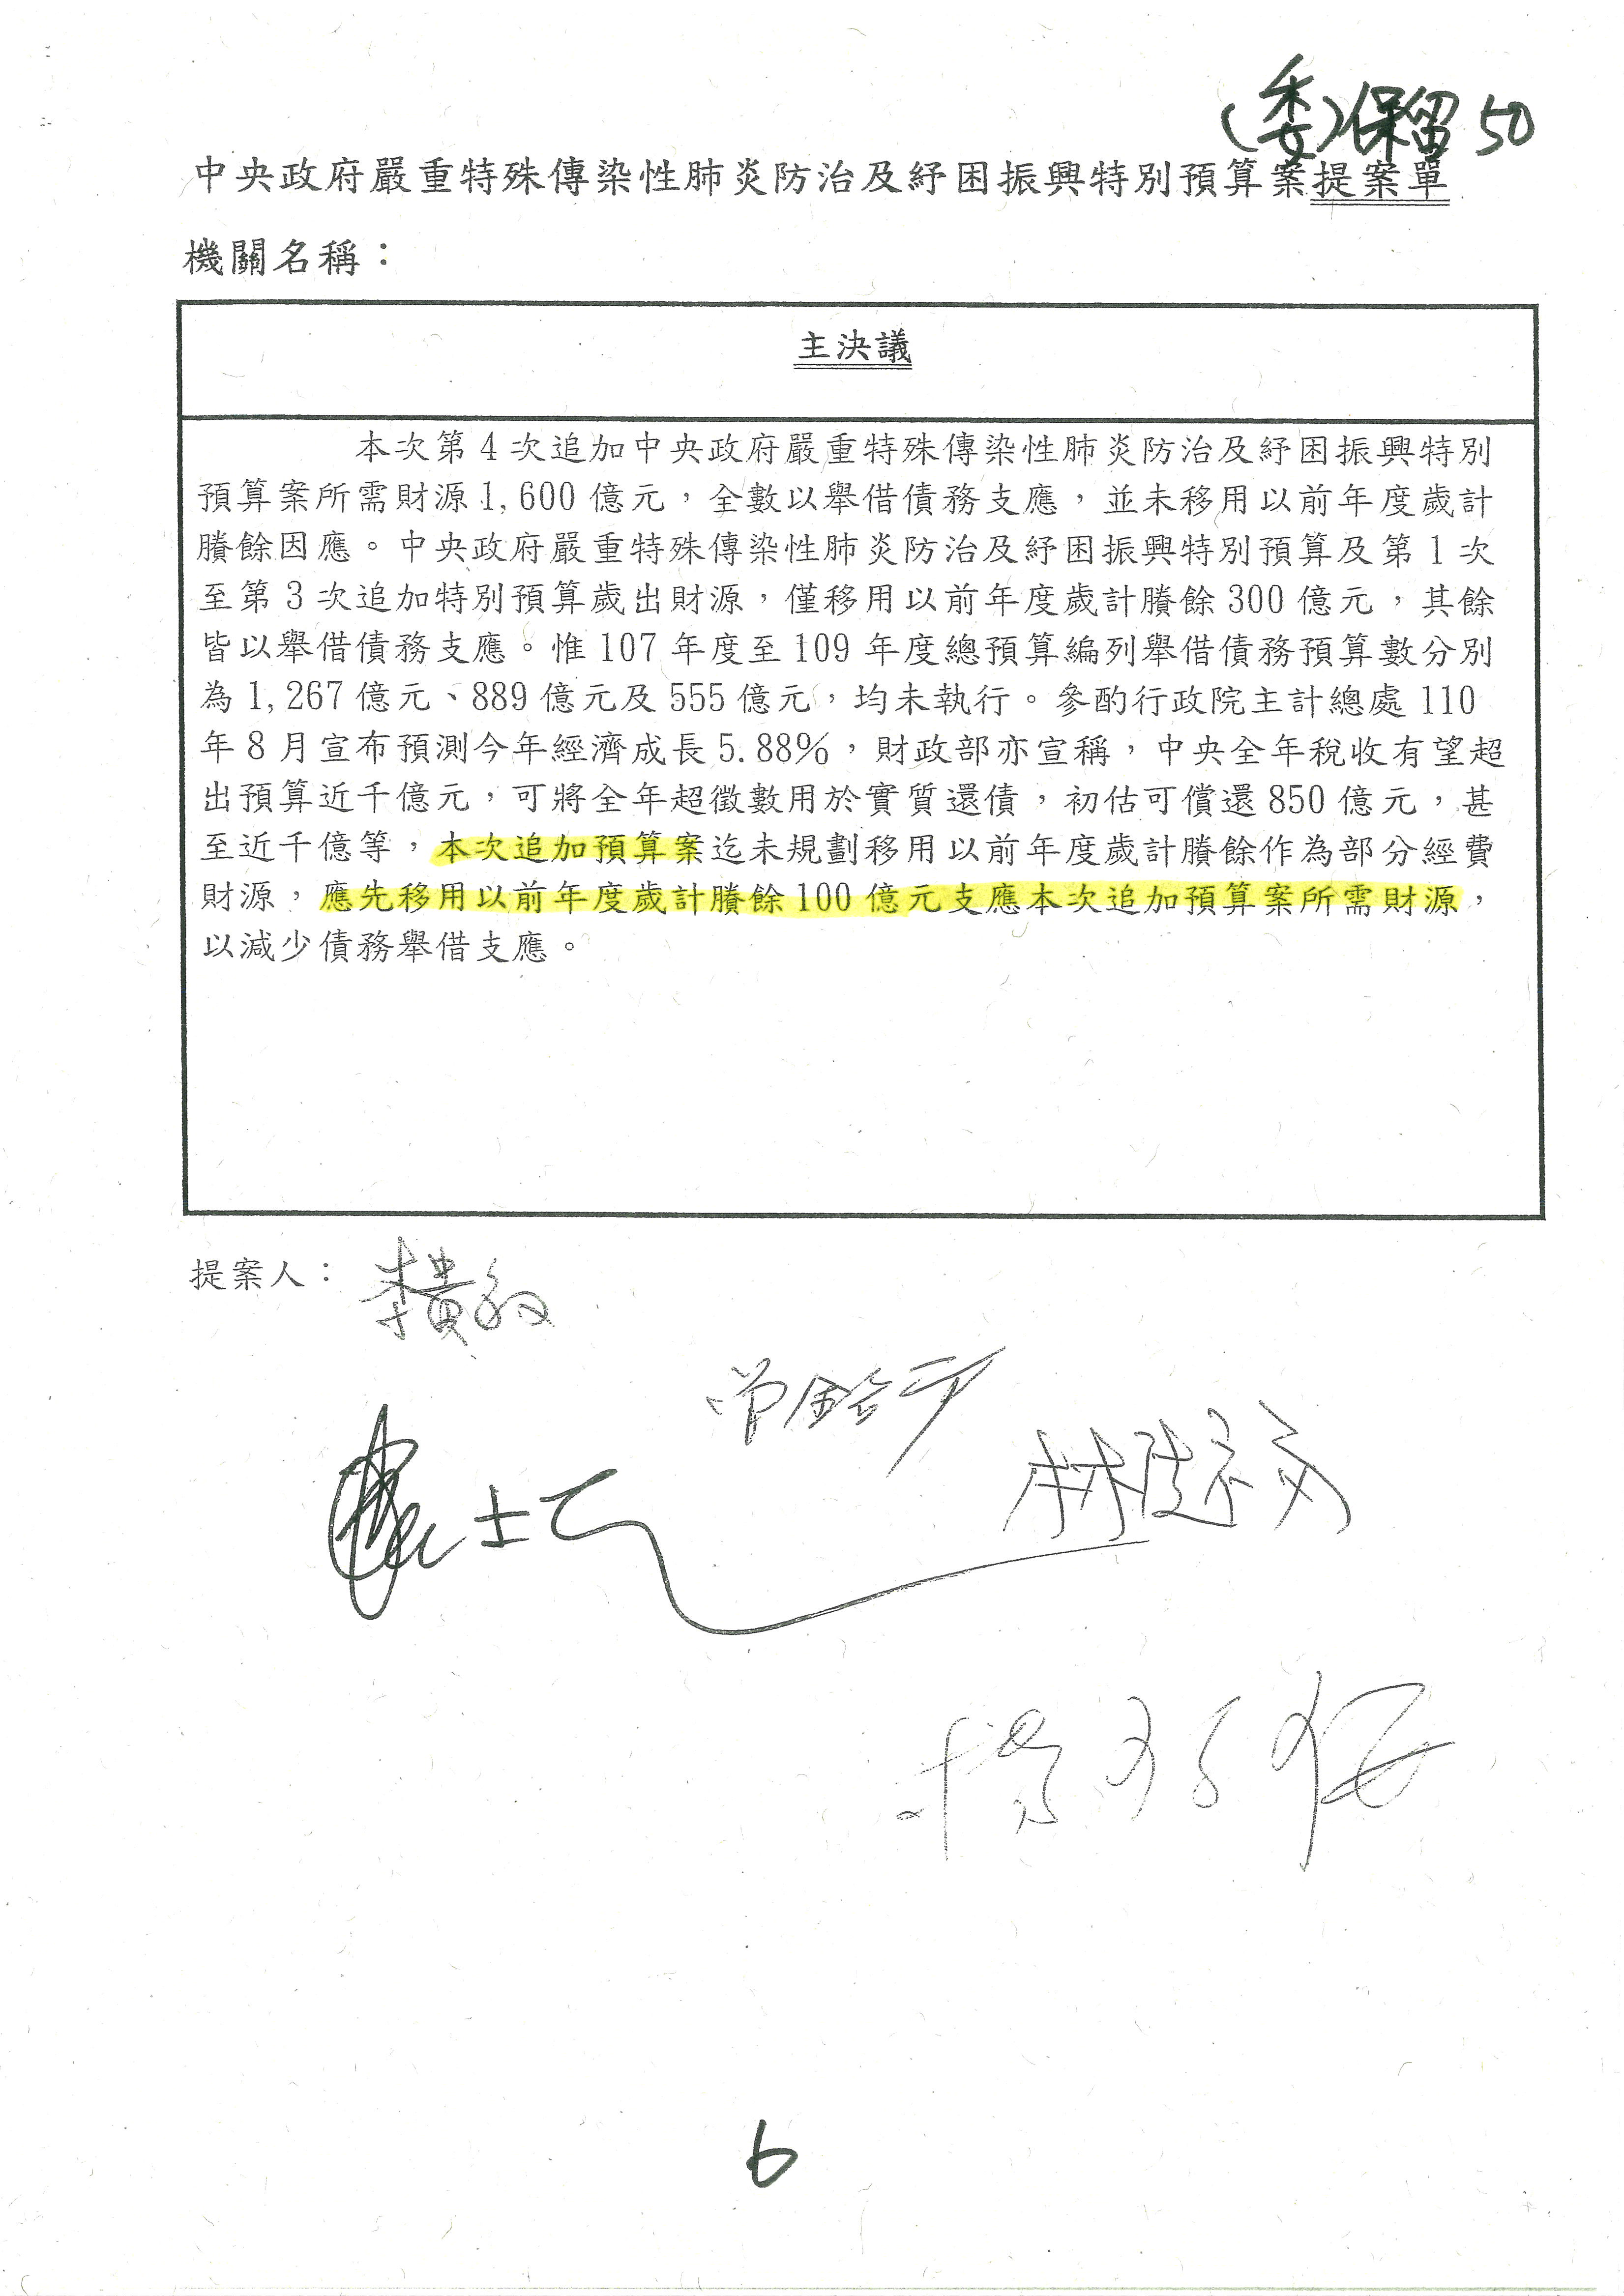 (委)保留 50
中央政府嚴重特殊傳染性肺炎防治及紓困振興特別預算案提案單
機關名稱：
主決議
本次第4次追加中央政府嚴重特殊傳染性肺炎防治及紓困振興特別
預算案所需財源1,600億元，全數以舉借債務支應，並未移用以前年度歲計
賸餘因應。中央政府嚴重特殊傳染性肺炎防治及紓困振興特別預算及第1次
至第3次追加特別預算歲出財源，僅移用以前年度歲計賸餘300億元，其餘
皆以舉借債務支應。惟107年度至109年度總預算編列舉借債務預算數分別
為1,267億元、889億元及555億元，均未執行。參酌行政院主計總處110
年8月宣布預測今年經濟成長5.88%，財政部亦宣稱，中央全年稅收有望超
出預算近千億元，可將全年超徵數用於實質還債，初估可償還850億元，甚
至近千億等，本次追加預算案迄未規劃移用以前年度歲計賸餘作為部分經費
財源，應先移用以前年度歲計賸餘100億元支應本次追加預算案所需財源，
以減少債務舉借支應。
提案人：李貴敏
6